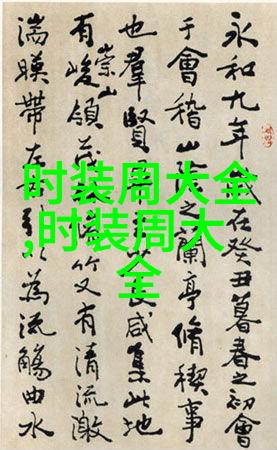 永和九年歲在癸丑暮春之初會
于會稽山陰之蘭亭脩稧事
也羣賢長咸集此地
有崇山峻領茂竹又有清流激
湍暎帶左為流觴曲水
时装周大全
,时装周大
全